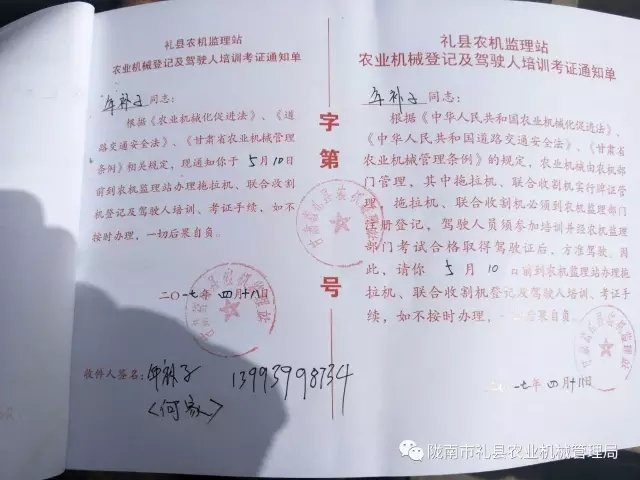 礼县农机监理站
农业机械登记及驾驶人培训考证通知单
同志：
根据《农业机械化促进法》、《道
路交通安全法》、《甘肃省农业机械管理
条例》相关规定，现通知你于 5月10日
前到农机监理站办理拖拉机、联合收割
机登记及驾驶人培训、考证手续，如不
按时办理，一切后果自负。
二〇一七年 四月十八日
收件人签名：
13993998734
字第
号
礼县农机监理站
农业机械登记及驾驶人培训考证通知单
同志：
根据《中华人民共和国农业机械化促进法》、
《中华人民共和国道路交通安全法》、《甘肃省
农业机械管理条例》的规定，农业机械由农机部
门管理，其中拖拉机、联合收割机实行牌证管
理，拖拉机、联合收割机必须到农机监理部门
注册登记，驾驶人员须参加培训并经农机监理
部门考试合格取得驾驶证后，方准驾驶。因
此，请你 5 月 10 日前到农机监理站办理拖
拉机、联合收割机登记及驾驶人培训、考证手
续，如不按时办理，一切后果自负。
二〇一七年 四月十八日
陇南市礼县农业机械管理局